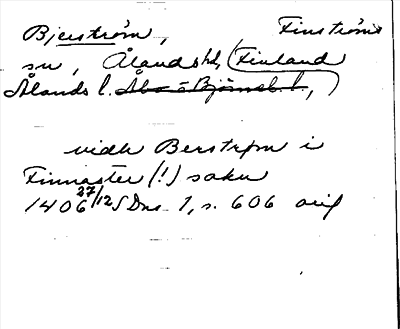 Bjerström, Finströms
sn, Ålands hd, (Finland
Ålands l. Åbo o Björneb. l,)
vidh Berstrøm i
Finnaster (!) sokn
1406 27/12 SDns 1, s. 606 orig